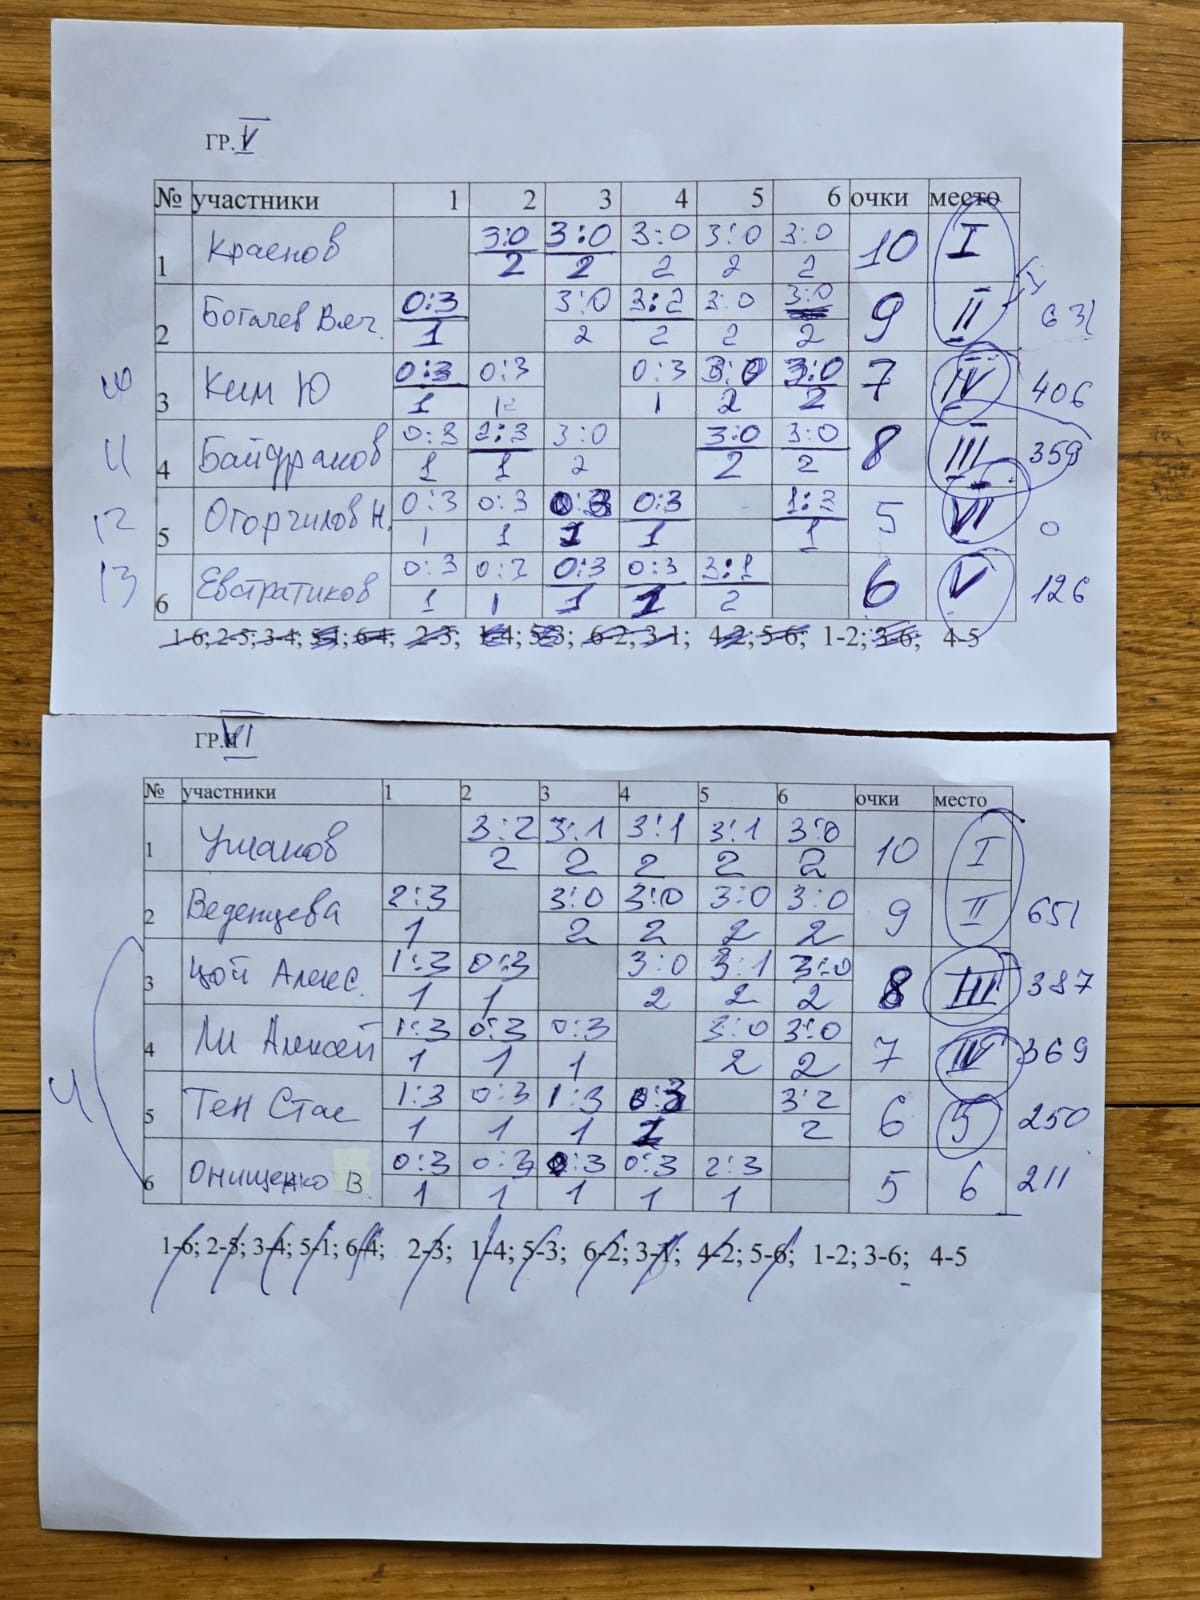 ГР. V
№ участники 1 2 3 4 5 6 очки место
1 Краснов 3:0 3:0 3:0 3:0 3:0 10 I
2 2 2 2 2
2 Богачев Вяч. 0:3 3:0 3:2 3:0 3:0 9 II 631
1 2 2 2 2
3 Ким Ю 0:3 0:3 0:3 3:0 3:0 7 IV 406
1 1 1 2 2
11 4 Байдраков 0:3 2:3 3:0 3:0 3:0 8 III 359
1 1 2 2 2
12 5 Огорчилов Н. 0:3 0:3 0:3 0:3 1:3 5 VI 0
1 1 1 1 1
13 6 Евстратиков 0:3 0:3 0:3 0:3 3:1 6 V 126
1 1 1 1 2
1-6; 2-5; 3-4; 5-1; 6-4; 2-3; 1-4; 5-3; 6-2; 3-1; 4-2; 5-6; 1-2; 3-6; 4-5
ГР. VI
№ участники 1 2 3 4 5 6 очки место
1 Ушаков 3:2 3:1 3:1 3:1 3:0 10 I
2 2 2 2 2
2 Веденцева 2:3 3:0 3:0 3:0 3:0 9 II 651
1 2 2 2 2
3 Цой Алекс. 1:3 0:3 3:0 3:1 3:0 8 III 387
1 1 2 2 2
4 Ли Алексей 1:3 0:3 0:3 3:0 3:0 7 IV 369
1 1 1 2 2
5 Тен Стас 1:3 0:3 1:3 0:3 3:2 6 5 250
1 1 1 1 2
6 Онищенко В. 0:3 0:3 0:3 0:3 2:3 5 6 211
1 1 1 1 1
1-6; 2-5; 3-4; 5-1; 6-4; 2-3; 1-4; 5-3; 6-2; 3-1; 4-2; 5-6; 1-2; 3-6; 4-5